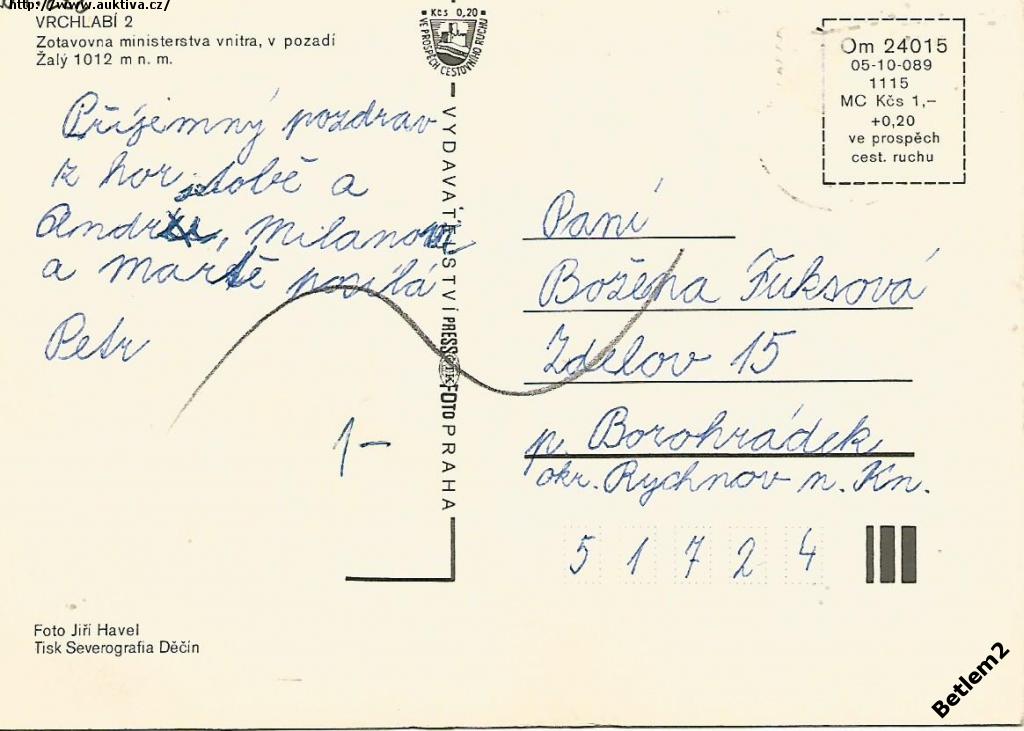 http://www.auktiva.cz/
VRCHLABÍ 2
Zotavovna ministerstva vnitra, v pozadí
Žalý 1012 m n. m.
Příjemný pozdrav
z hor tobě a
, Milanovi
a Martě posílá
Petr
1-
Kčs 0,20
VE PROSPĚCH CESTOVNÍHO RUCHU
VYDAVATELSTVÍ PRESSFOTO PRAHA
Om 24015
05-10-089
1115
MC Kčs 1,–
+0,20
ve prospěch
cest. ruchu
Paní
Božena Fuksová
Zdelov 15
p. Borohrádek
okr. Rychnov n. Kn.
5 1 7 2 4
Foto Jiří Havel
Tisk Severografia Děčín
Betlem2